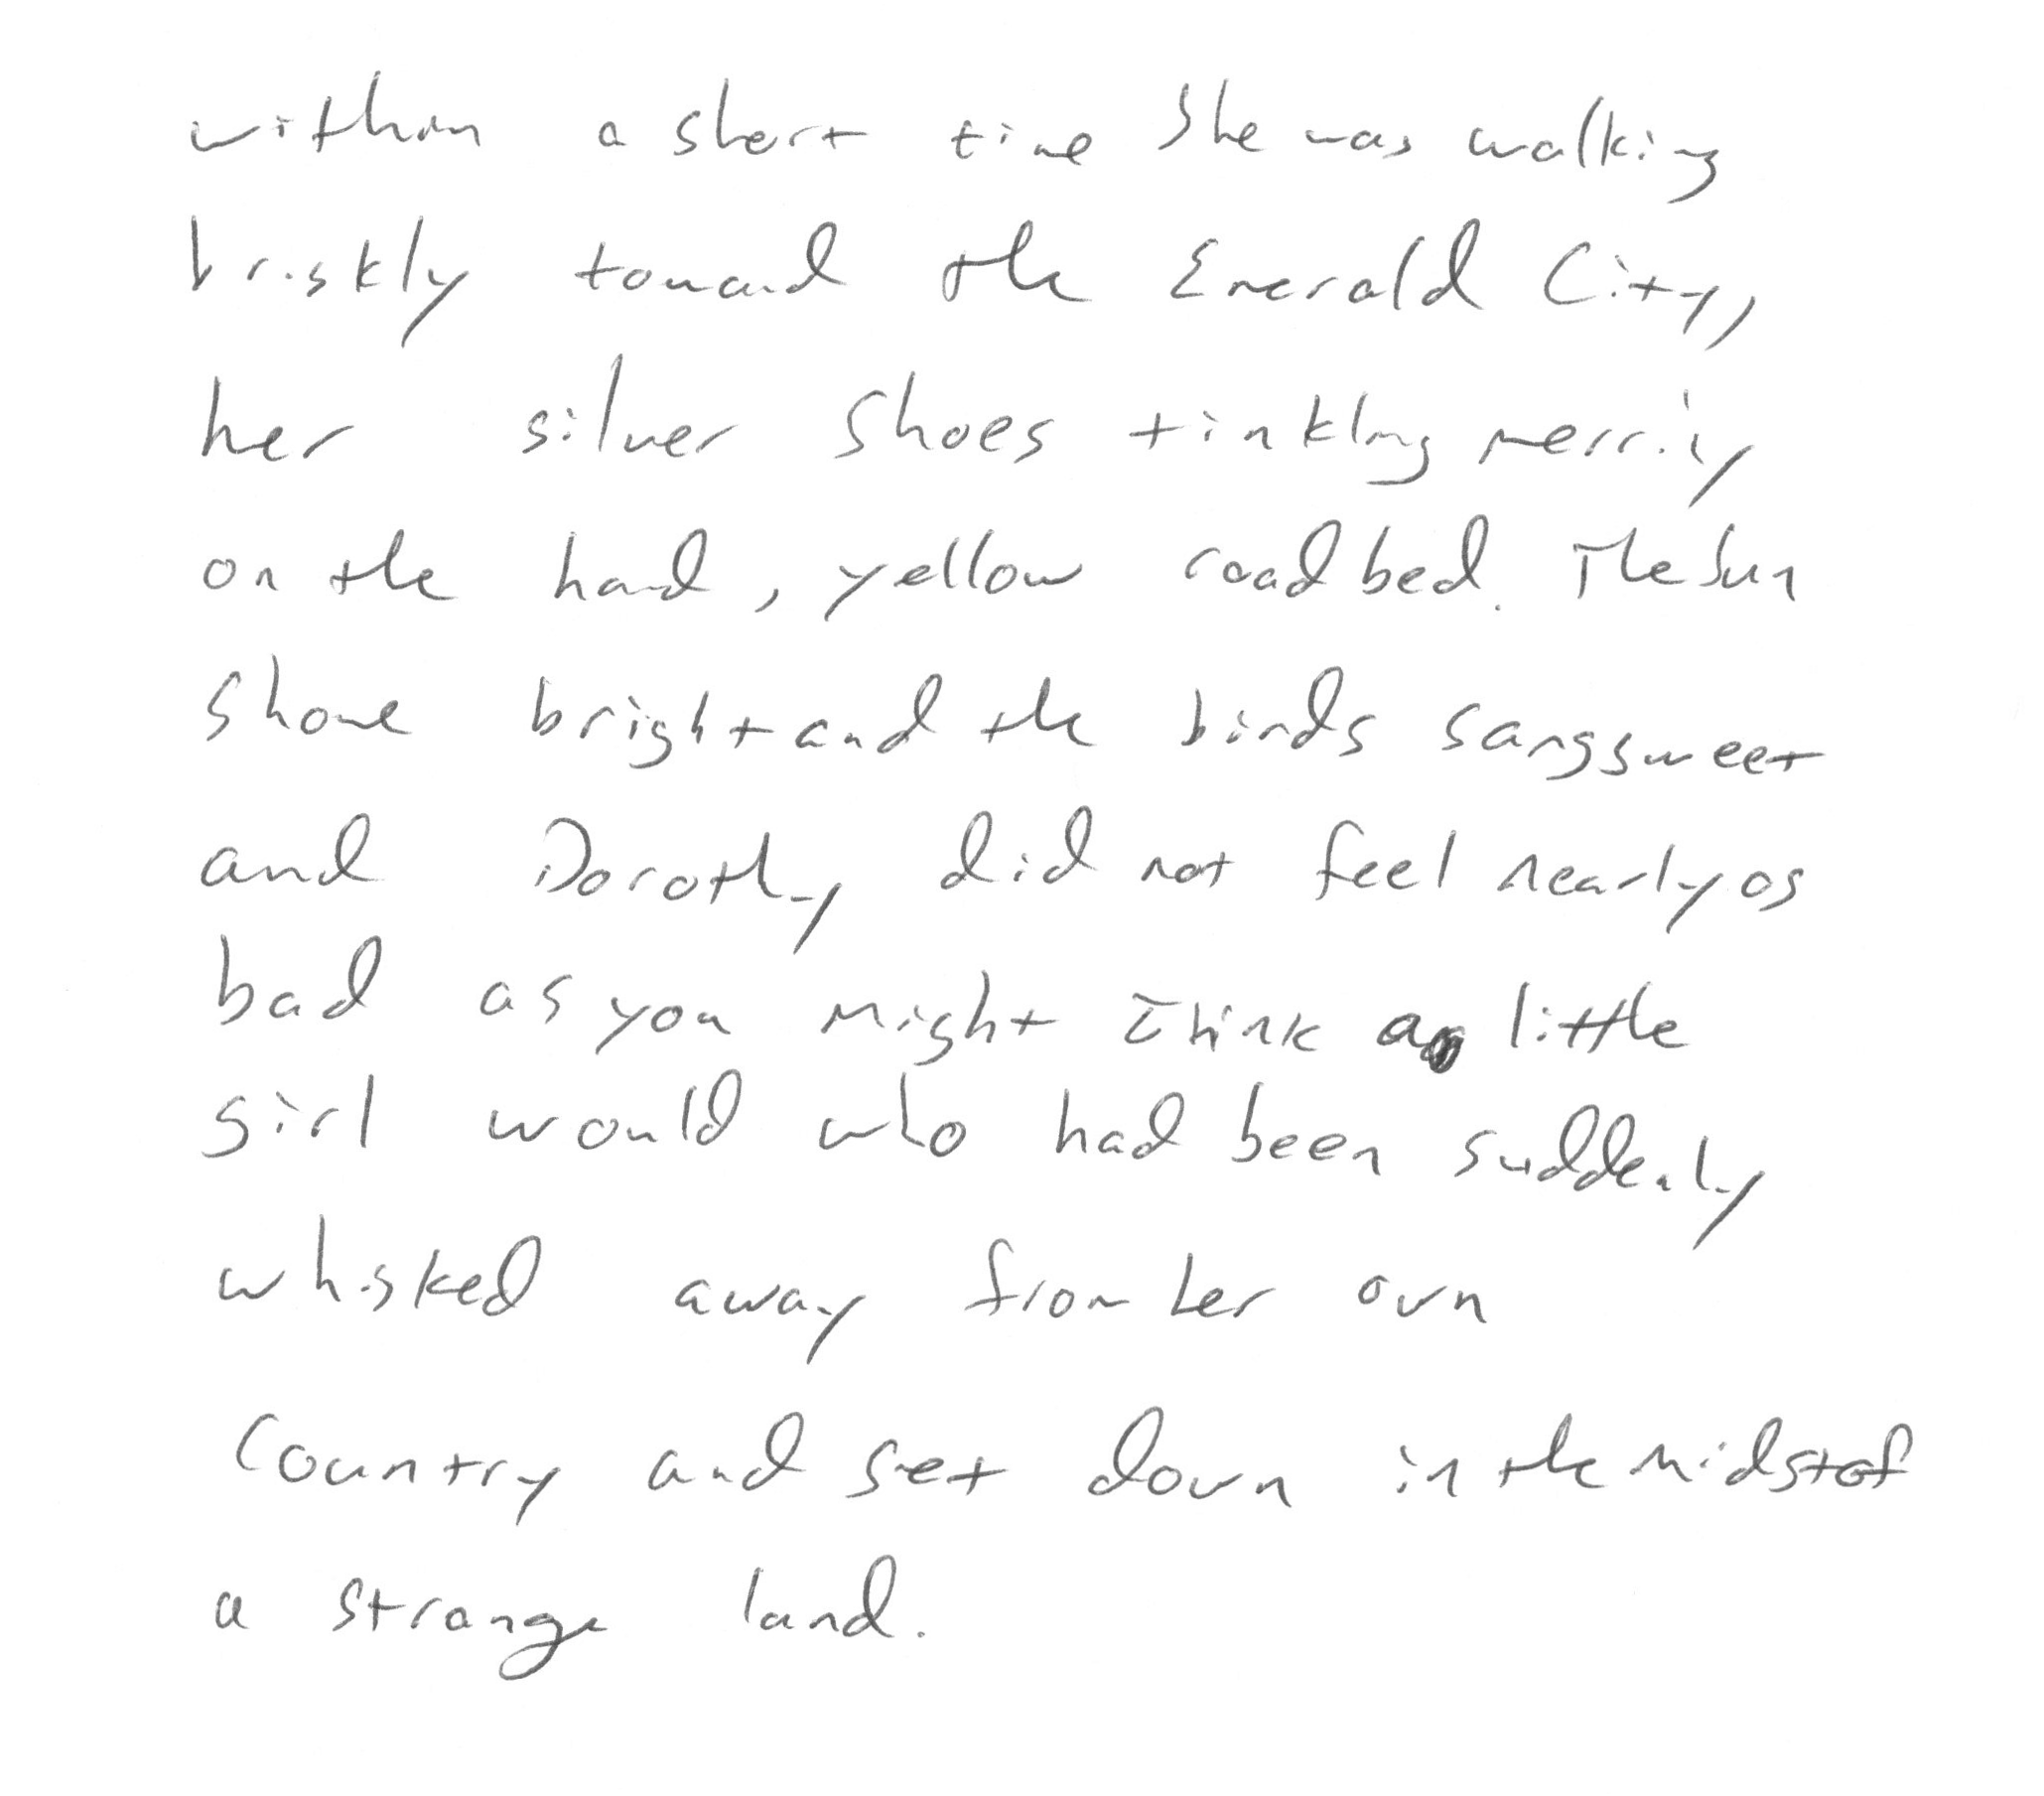 within a short time she was walking
briskly toward the Emerald City,
her silver shoes tinkling merrily
on the hard, yellow roadbed. The sun
shone bright and the birds sang sweet
and Dorothy did not feel nearly as
bad as you might think a little
girl would who had been suddenly
whisked away from her own
country and set down in the midst of
a strange land.